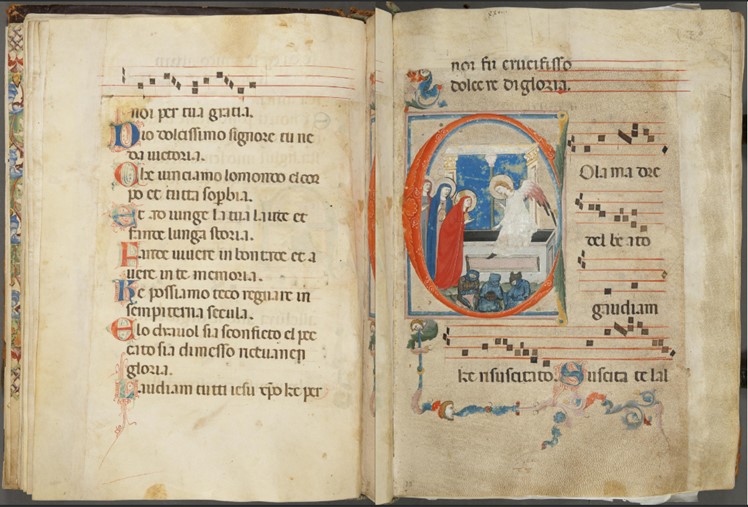 noi per tua gratia.
Dio dolcissimo signore tu ne
da uictoria.
Che uinciamo lomondo elcor
po et tutta sopbia.
Et iunge la tua laude et
lunga storia.
uiuere in bontate et a
uere in te memoria.
Ke possiamo teco regnare in
sempiterna secula.
Elo diauol sia sconficto el pec
cato sia dimesso
gloria.
Laudiam tutti iesu xpo ke per
noi fu crucifisso
dolce re digloria.
COla ma dre
del be ato
gaudiam
ke nsuscitato. Suscita te lal